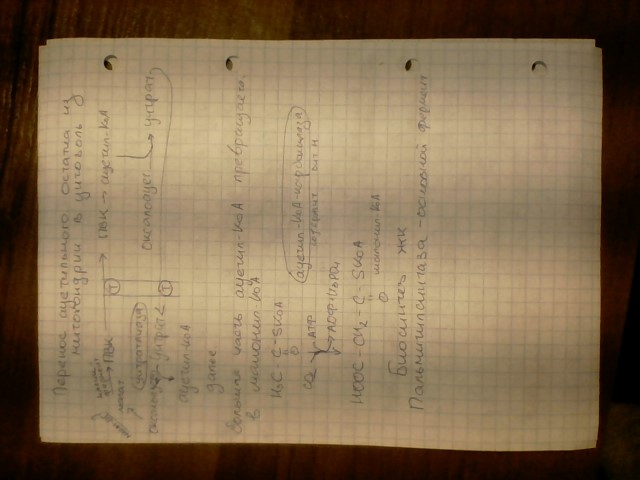 Перенос ацетильного остатка из
митохондрии в цитозоль
ПВК → ацетил-КоА
ПВК
малат
цитратлиаза
оксалоацет → цитрат
цитрат
ацетил-КоА
далее
большая часть ацетил-КоА превращается
в малонил-КоА
H3C - C - SKoA
O
ацетил-КоА-карбоксилаза
вит H
CO2 АТФ
АДФ+
HOOC - CH2 - C - SKoA
O
малонил-КоА
Биосинтез ЖК
Пальмитилсинтаза - основной фермент